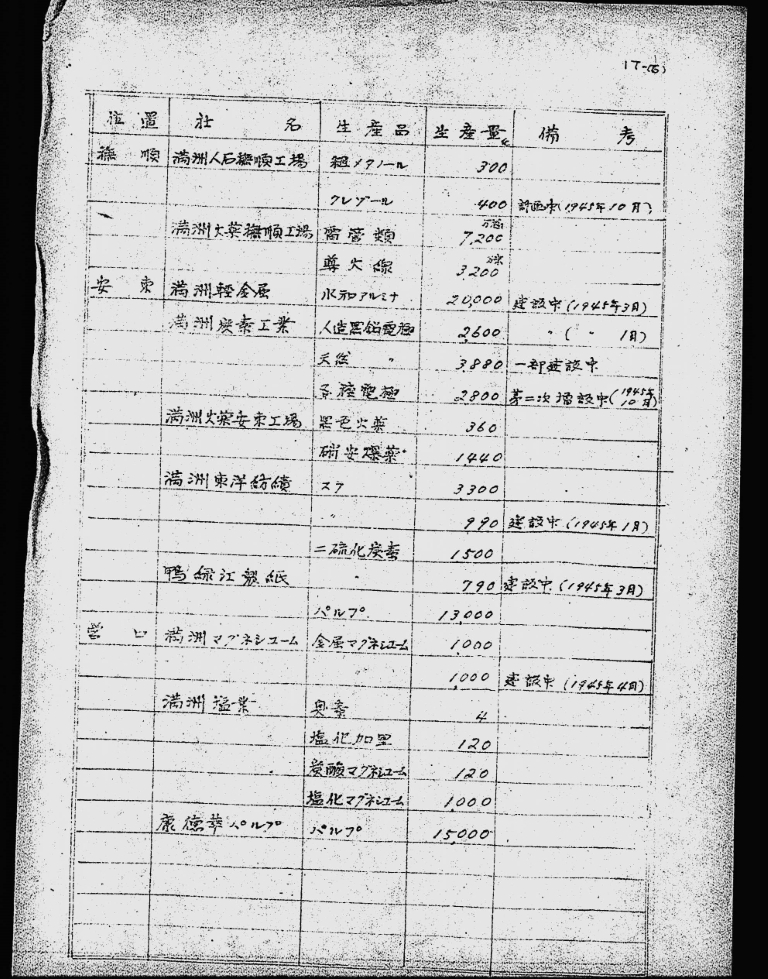 17-(5)
位置 社名 生産品 生産量 備考
撫順 満洲人石撫順工場 粗メタノール 300
クレゾール 400 計画中(1945年10月)
満洲火薬撫順工場 雷管類 7,200
導火線 3,200
安東 満洲軽金属 水和アルミナ 20,000 建設中(1945年3月)
満洲炭素工業 人造黒鉛電極 2,600 〃(〃 1月)
天然 〃 3,880 一部建設中
電極 2800 第二次増設中(1945年10月)
満洲火薬安東工場 黒色火薬 360
硝安爆薬 1,440
満洲東洋紡績 スフ 3,300
〃 990 建設中(1945年1月)
二硫化炭素 1500
鴨緑江製紙 〃 790 建設中(1945年3月)
パルプ 13,000
営口 満洲マグネシューム 金属マグネシューム 1,000
1,000 建設中(1945年4月)
満洲塩業 臭素 4
塩化加里 120
炭酸マグネシューム 120
塩化マグネシューム 1,000
康徳葦パルプ パルプ 15,000